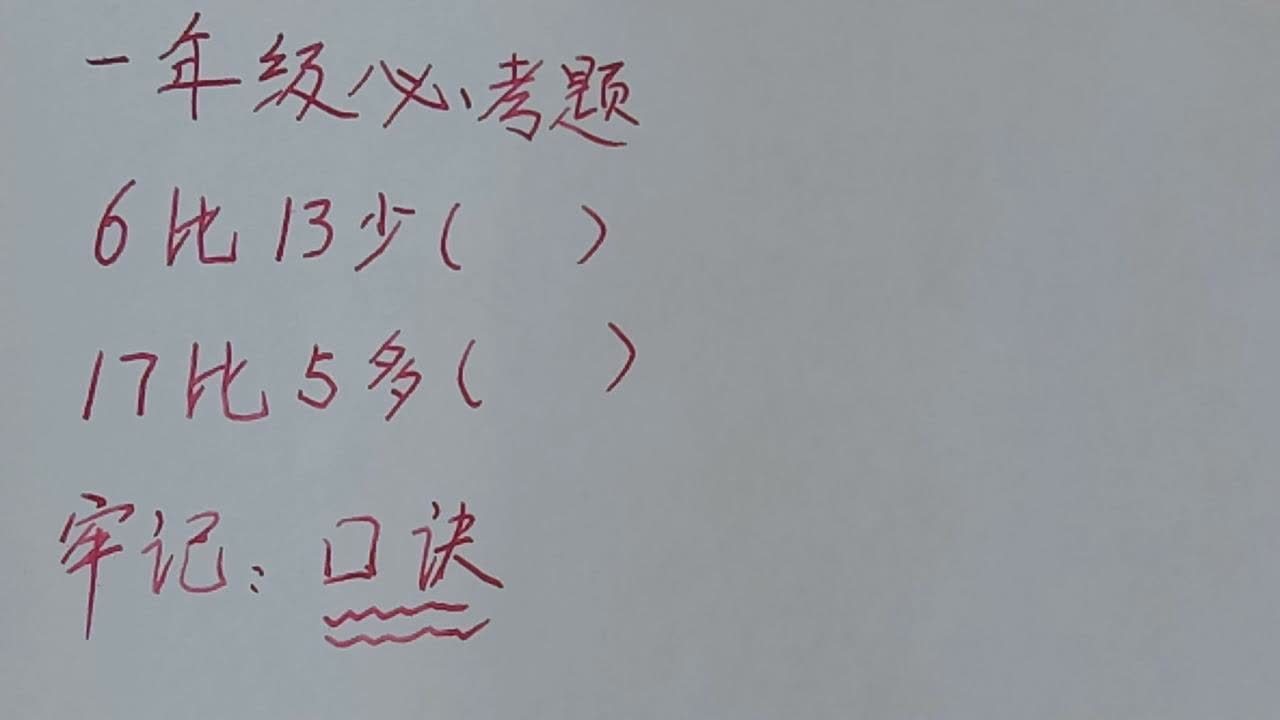 一年级必考题
6比13少( )
17比5多( )
牢记:口诀